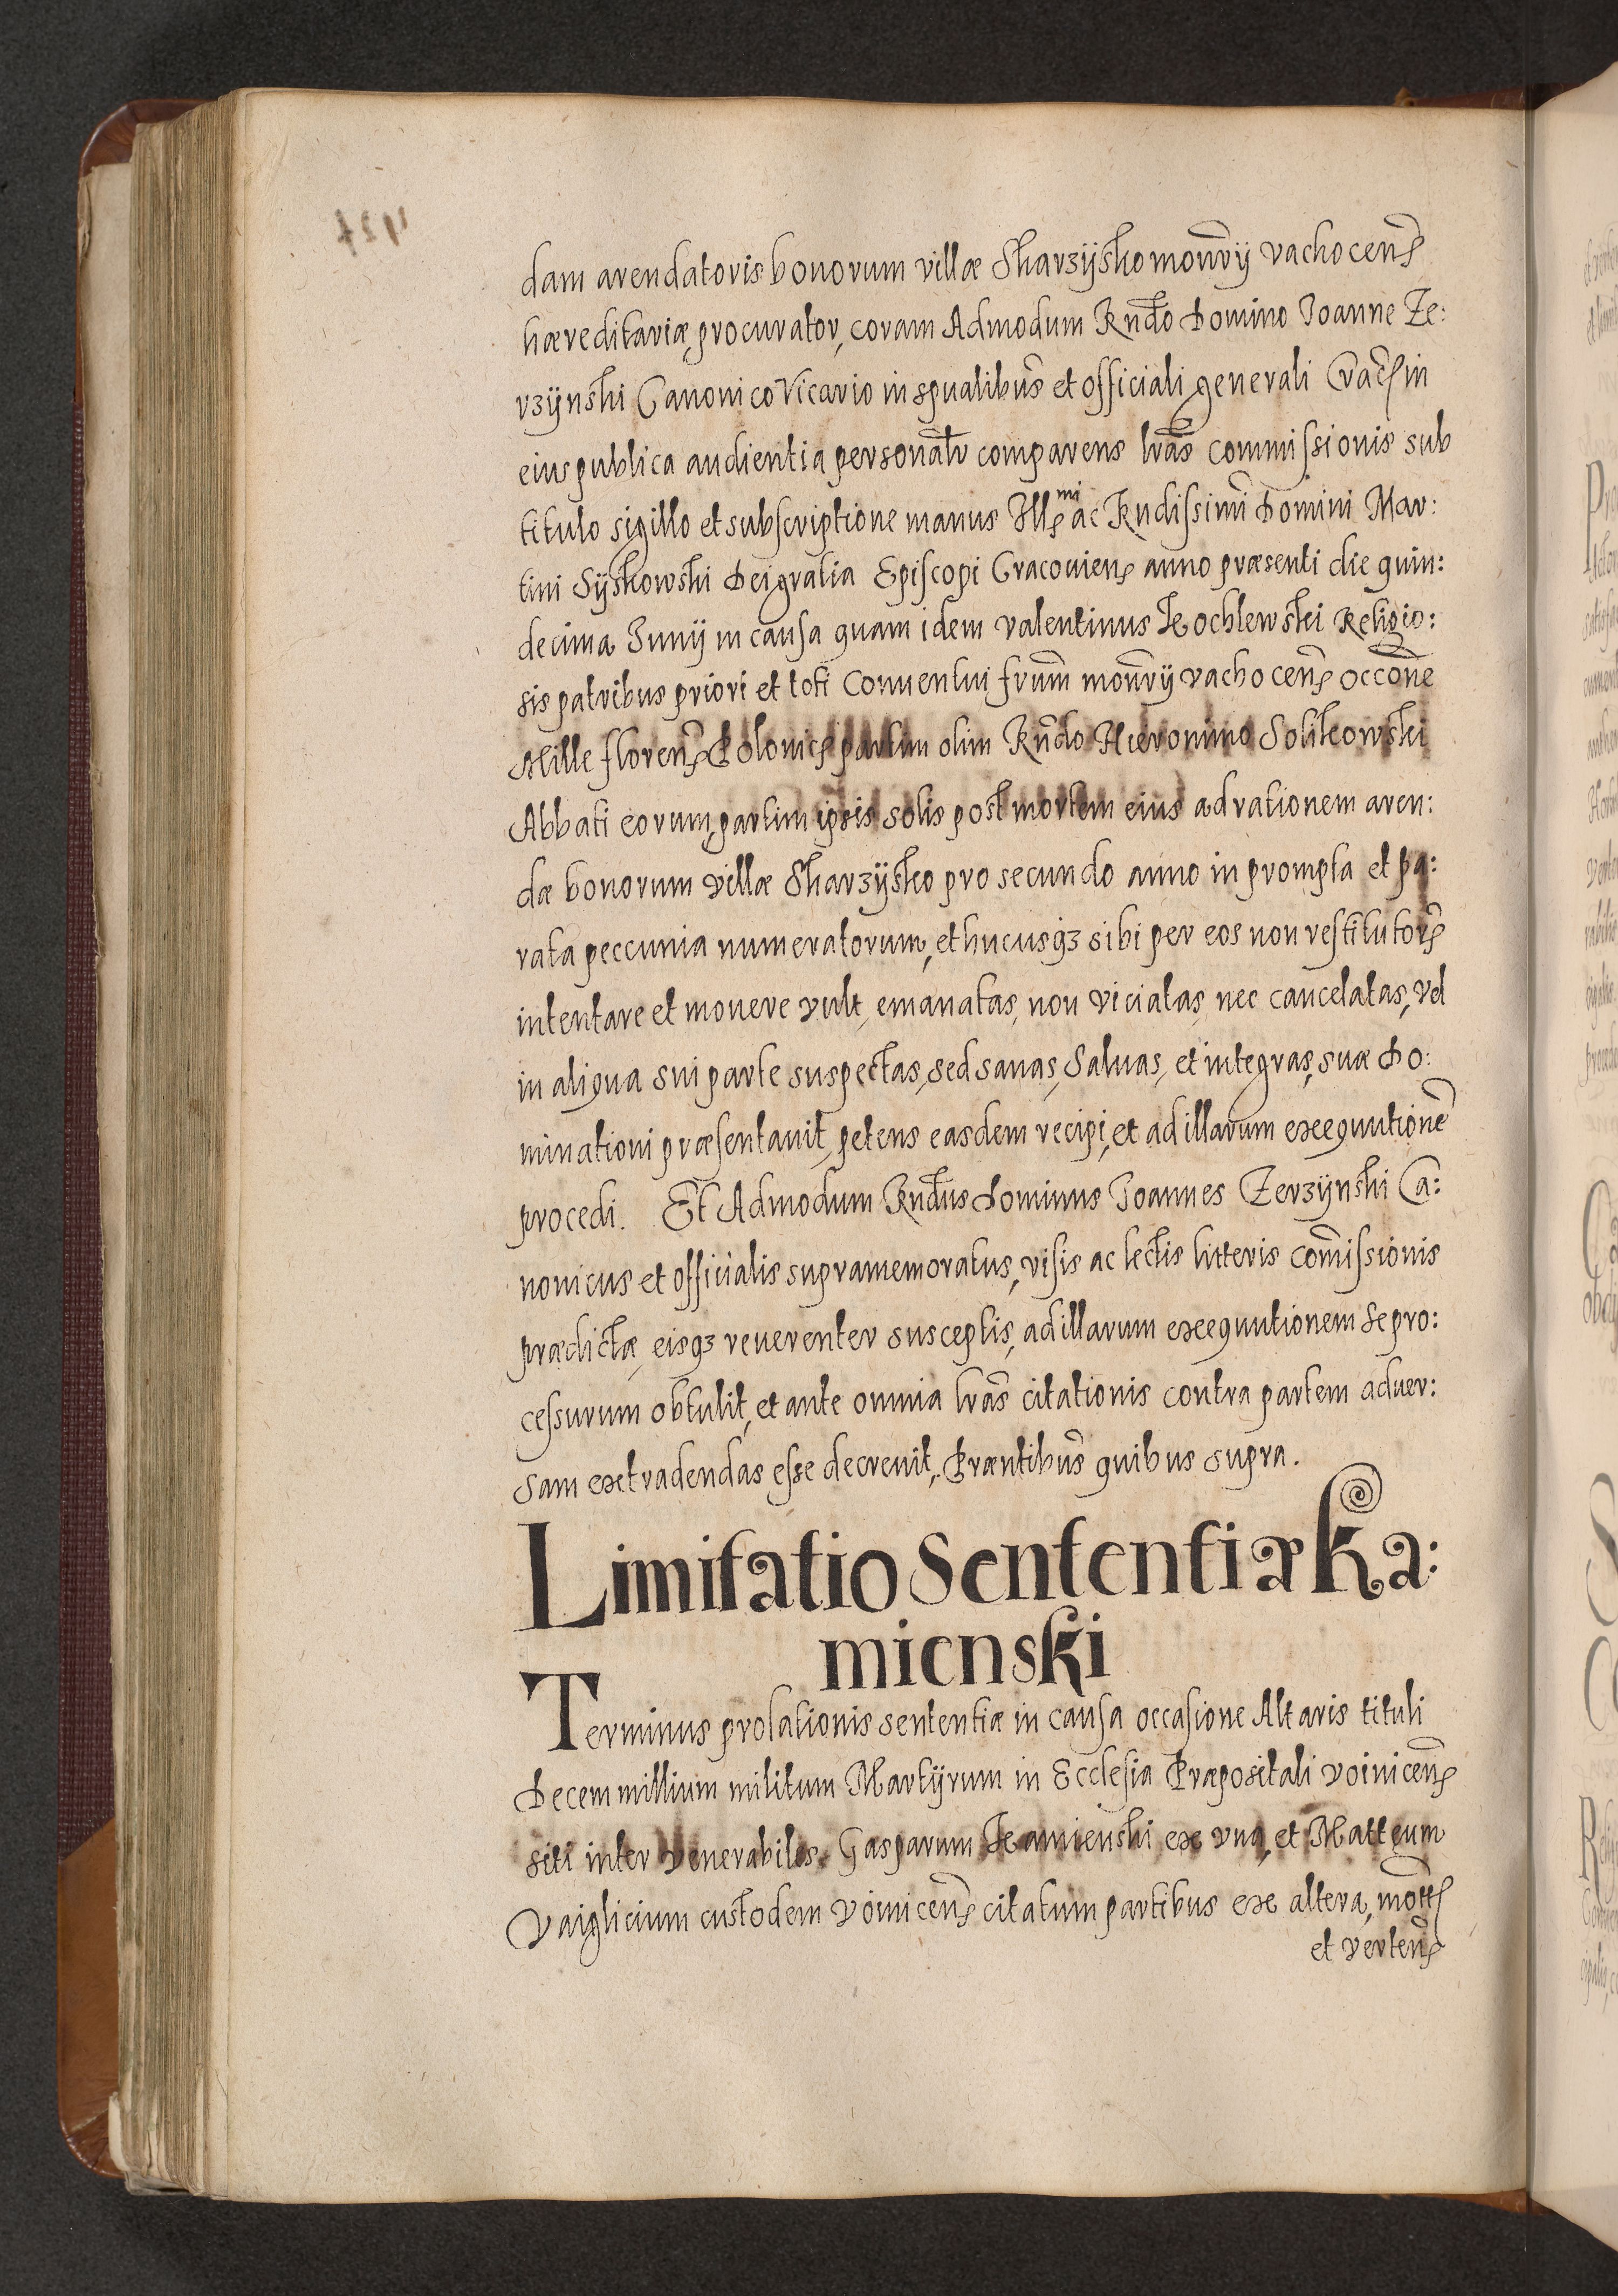 dam arendatoris bonorum villæ Skarzÿsko monrÿ vachocens
hæreditariæ, procurator, coram Admodum Rndo Domino Joanne Ze:
rzÿnski Canonico Vicario in spualibus et officiali generali Crac in
eius publica audientia personalr comparens lras commissionis sub
titulo sigillo et subscriptione manus Ills mi ac Rndissimi Domini Mar:
tini Sÿskowski Dei gratia Episcopi Cracouiens anno præsenti die quin:
decima Junÿ in causa quam idem valentinus Kochlewski Religio:
sis patribus priori et toti Conuentui frum monrÿ vachocens occone
Mille florens Polonics partim olim Rndo Hieronimo Solikowski
Abbati eorum, partim ipsis solis post mortem eius ad rationem aren:
dæ bonorum villæ Skarzÿsko pro secundo anno in prompta et pa:
rata peccunia numeratorum, et hucusqz sibi per eos non restitutors
intentare et mouere vult, emanatas, non viciatas, nec cancelatas, vel
in aliqua sui parte suspectas, sed sanas, Saluas, et integras, suæ Do:
minationi præsentauit, petens easdem recipi, et ad illarum exequutione
procedi. Et Admodum Rndus Dominus Joannes Zerzÿnski Ca:
nonicus et officialis supramemoratus, visis ac lectis litteris comissionis
prædictæ, eisqz reuerenter susceptis, ad illarum exequutionem se pro:
cessurum obtulit, et ante omnia lras citationis contra partem aduer:
sam extradendas esse decreuit, Præntibus quibus supra.
Limitatio Sententiæ Ka:
mienski
Terminus prolationis sententiæ in causa occasione Altaris tituli
Decem millium militum Martÿrum in Ecclesia Præpositali voinicens
siti inter Venerabiles Gasparum Kamienski ex vna, et Matteum
Vaiglicium custodem voinicens citatum partibus ex altera, mott
et vertens